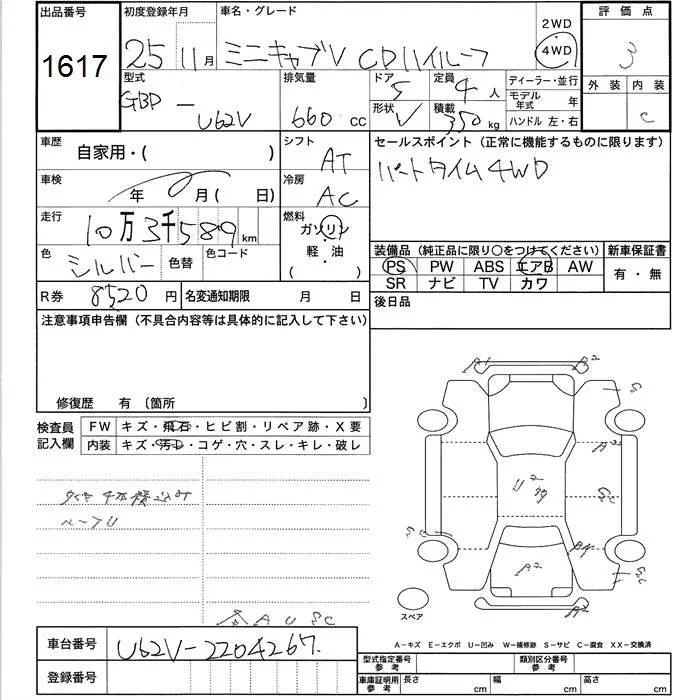 出品番号
1617
初度登録年月
25 11月
車名・グレード
ミニキャブV CDハイルーフ
2WD
4WD
評価点
3
外装 内装
C
型式
GBD-
U62V
排気量
660 cc
ドア
5
定員
4 人
形状
V
積載
350 kg
ディーラー・並行
モデル年式 年
ハンドル 左・右
車歴
自家用・( )
シフト
AT
セールスポイント (正常に機能するものに限ります)
パートタイム4WD
車検
年 月 ( 日)
冷房
AC
走行
10万3千589 km
燃料
ガソリン
軽・油
・( )
色
シルバー
色替
色コード
装備品 (純正品に限り○をつけてください)
PS PW ABS エアB AW
SR ナビ TV カワ
新車保証書
有・無
R券
8520 円
名変通知期限 月 日
後日品
注意事項申告欄 (不具合内容等は具体的に記入して下さい)
修復歴 有 〔箇所 〕
検査員
記入欄
FW キズ・飛石・ヒビ割・リペア跡・X要
内装 キズ・汚レ・コゲ・穴・スレ・キレ・破レ
タイヤ 4本積込み
ルーフU
A U SC
A1
A2
S
A2
U2
SC
A2
SC
スペア
A-キズ E-エクボ U-凹み W-補修跡 S-サビ C-腐食 XX-交換済
車台番号
U62V-2204267
登録番号
型式指定番号
参考
類別区分番号
参考
車庫証明用
参考
長さ cm 幅 cm 高さ cm